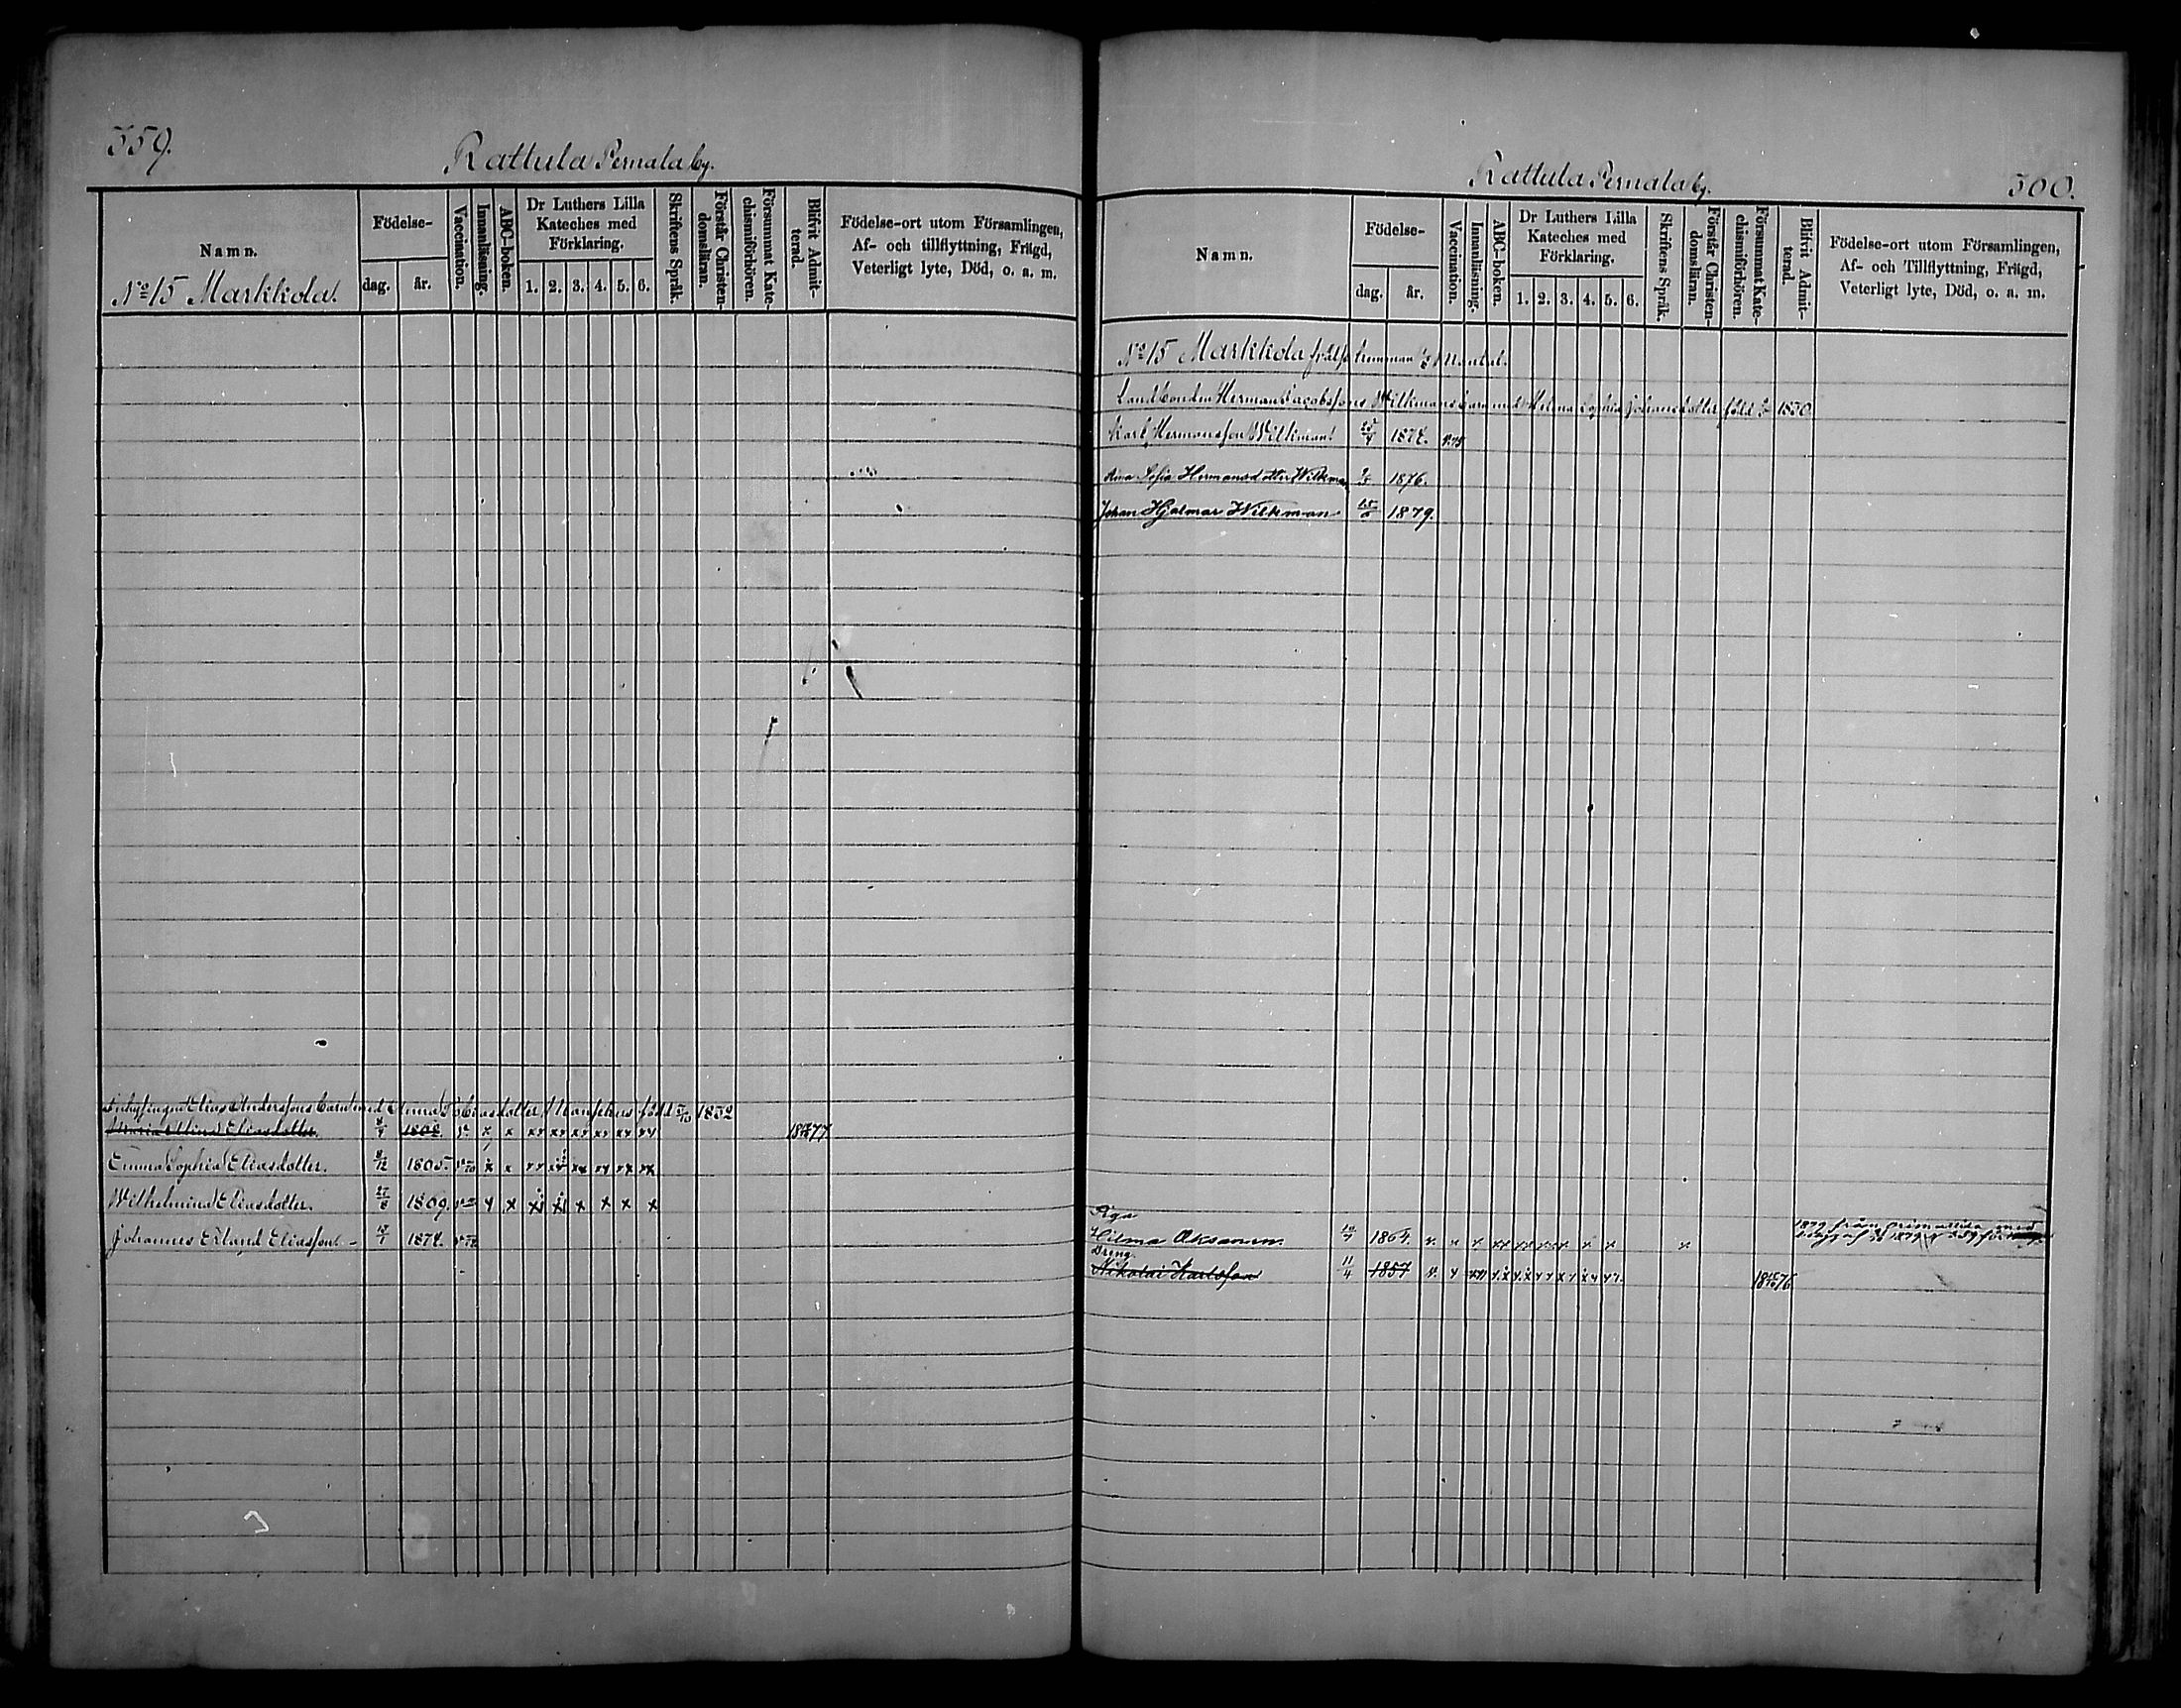 359.
Rattula Pernala by.
Namn.
Födelse-
dag.
år.
Vaccination.
Innanläsning.
ABC-boken.
Dr Luthers Lilla
Kateches med
Förklaring.
1. 2. 3. 4. 5. 6.
Skriftens Språk.
Förstår Christen-
domsläran.
Försummat Kate-
chismiförhören.
Blifvit Admit-
terad.
Födelse-ort utom Församlingen,
Af- och tillflyttning, Frägd,
Veterligt lyte, Död, o. a. m.
No 15 Markkola.
Inhysingen Elias Anderssons barn med Anna Tobiasdotter född 1832
Eliasdotter. 1877
Emma Sophia Eliasdotter. 1865.
Wilhelmina Eliasdotter. 27/8 1869.
Johannes Erland Eliasson 1874.
Rattula Pernala by.
360.
Namn.
Födelse-
dag.
år.
Vaccination.
Innanläsning.
ABC-boken.
Dr Luthers Lilla
Kateches med
Förklaring.
1. 2. 3. 4. 5. 6.
Skriftens Språk.
Förstår Christen-
domsläran.
Försummat Kate-
chismiförhören.
Blifvit Admit-
terad.
Födelse-ort utom Församlingen,
Af- och Tillflyttning, Frägd,
Veterligt lyte, Död, o. a. m.
No 15 Markkola frälse Mantal.
Landbonden Herman Jacobssons Wilkmans barn med Helena Sophia Johansdotter född 1850
Karl Hermansson Wilkman 25/4 1874.
Aina Sofia Hermansdotter Wilkman 1876.
Johan Hjalmar Wilkman 1879.
Piga
Hilma Aksanen 1864. 1879 från
Dreng
Nikolai Karlsson 11/4 1857 1876